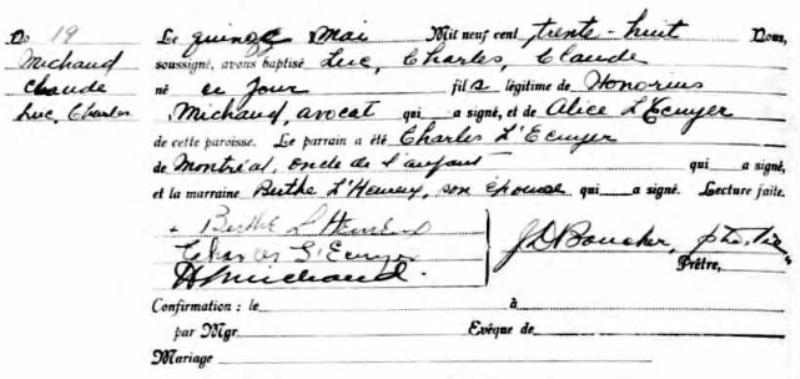 No 19
Michaud
Claude
Luc, Charles
Le quinze Mai Mil neuf cent trente-huit Nous,
soussigné, avons baptisé Luc, Charles, Claude
né ce jour fils légitime de Honorius
Michaud, avocat qui a signé, et de Alice L'Ecuyer
de cette paroisse. Le parrain a été Charles L'Ecuyer
de Montréal, oncle de l'enfant qui a signé,
et la marraine Berthe L'Heureux, son épouse qui a signé. Lecture faite.
Berthe L'Heureux
Charles L'Ecuyer
H Michaud.
J D Boucher, ptre. Vic.
Prêtre,
Confirmation : le à
par Mgr. Evêque de
Mariage